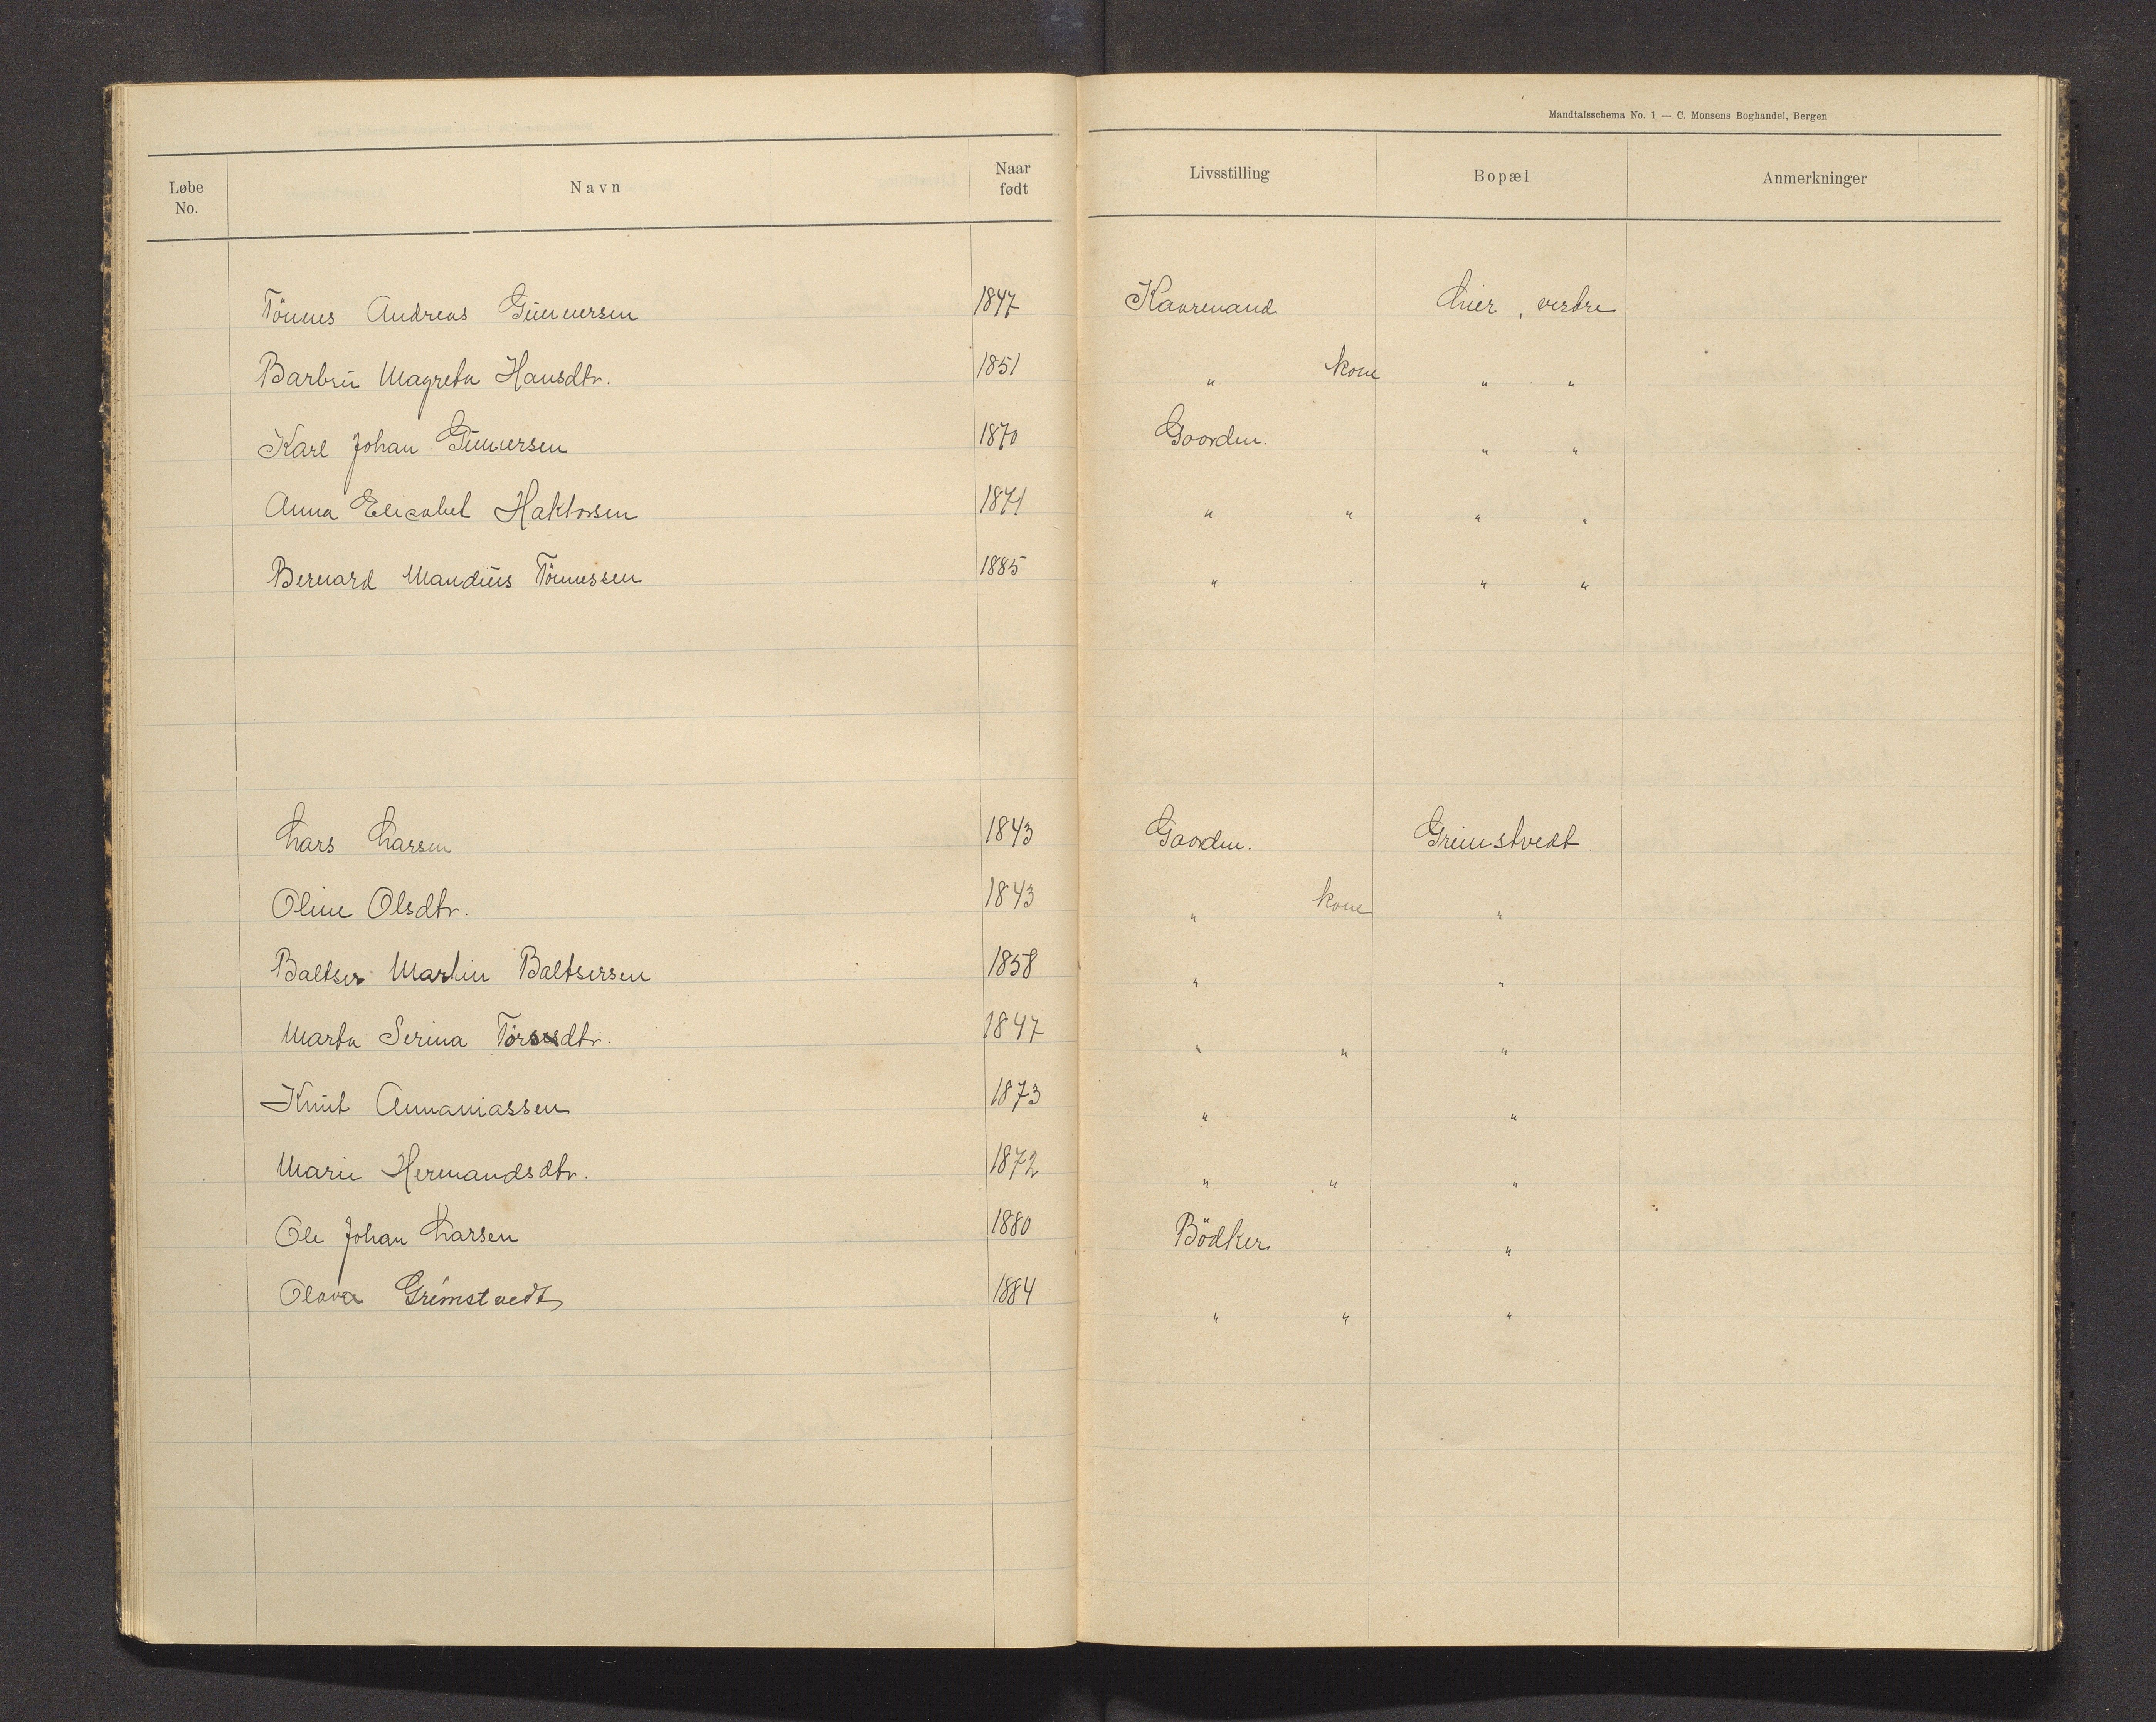 Mandtalsschema No. 1 — C. Monsens Boghandel, Bergen
Løbe No. Navn Naar født Livsstilling Bopæl Anmerkninger
Tönnes Andreas Gunnersen 1847 Kaarmand Lier, vestre
Barbru Magreta Hansdtr. 1851 " kone " "
Karl Johan Gunnersen 1870 Gaardm. " "
Anna Elisabet Haktorsen 1871 " " " "
Bernard Mandius Tönnessen 1885 " " "
Lars Larsen 1843 Gaardm. Greimstvedt
Oline Olsdtr. 1843 " kone "
Baltser Martin Baltsersen 1858 " "
Marta Serina dtr. 1847 " " "
Knut Annaniassen 1873 " "
Marie Hermandsdtr. 1872 " " "
Ole Johan Larsen 1880 Bödker "
Olava Grimstvedt 1884 " " "